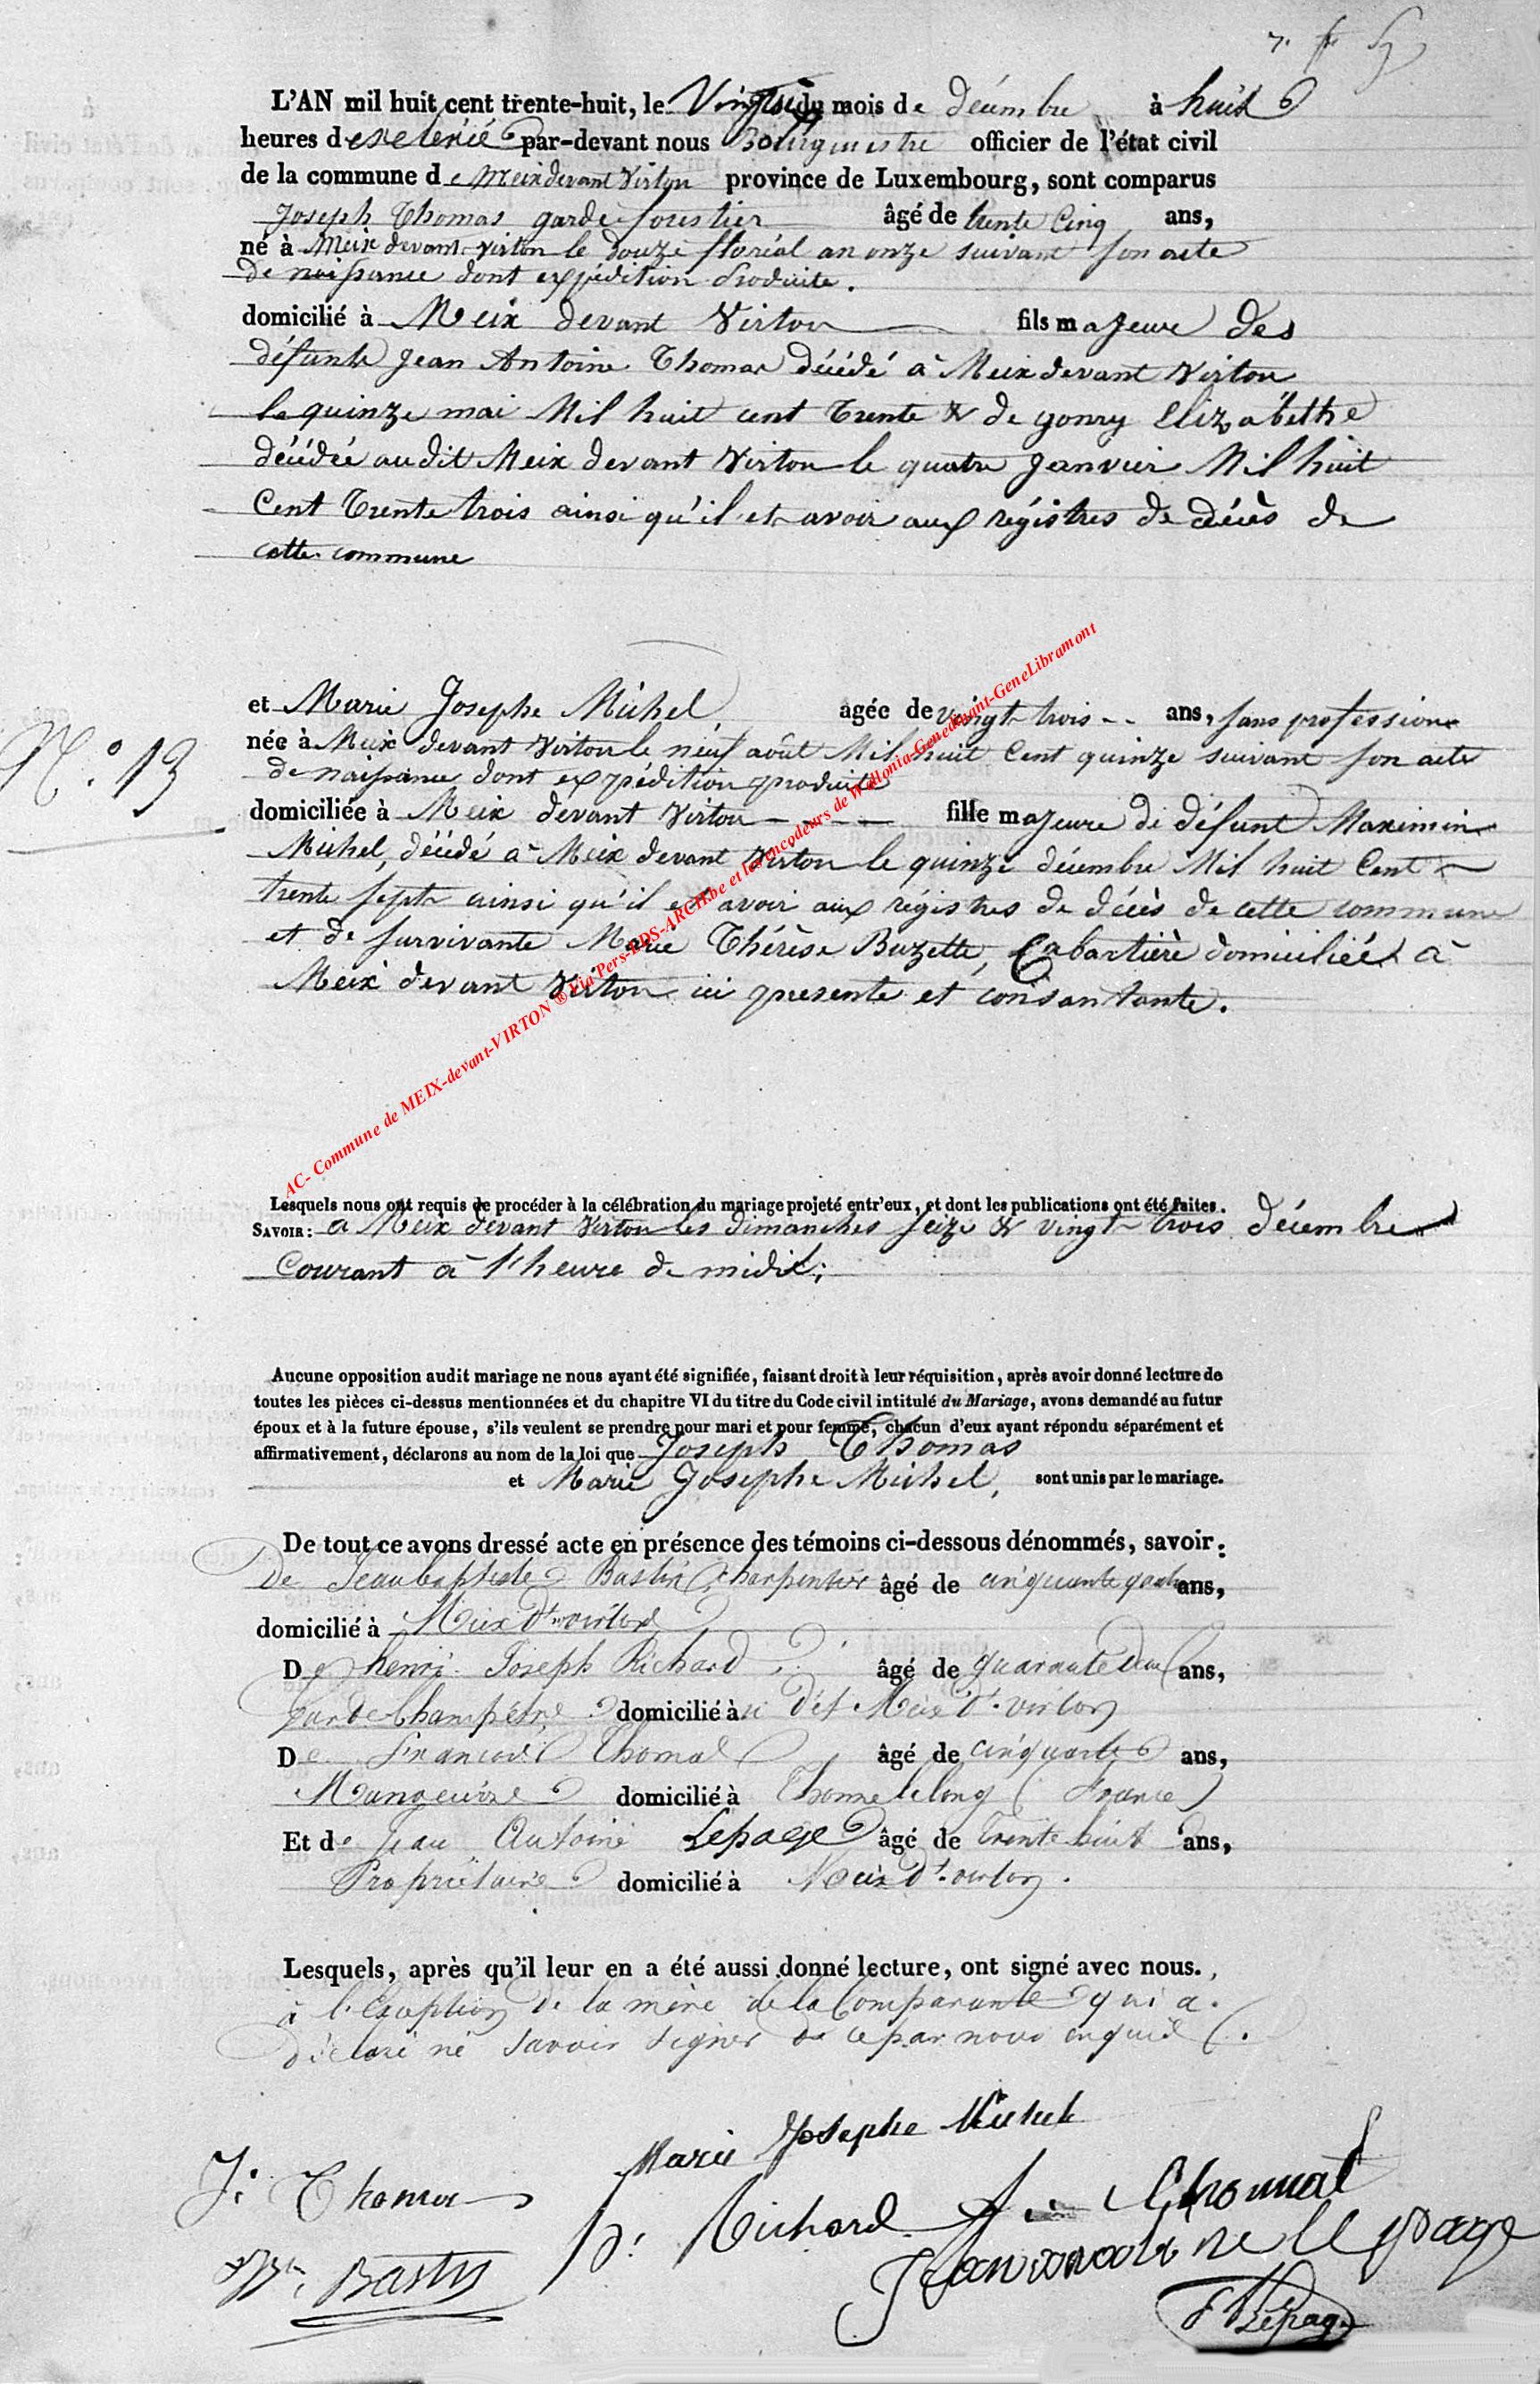 L'AN mil huit cent trente-huit, le du mois de décembre à huit
heures de par-devant nous Bourgmestre officier de l'état civil
de la commune de Meix devant Virton province de Luxembourg, sont comparus
Joseph Thomas garde forestier âgé de trente Cinq ans,
né à Meix devant Virton le douze floréal an onze suivant son acte
de naissance dont expédition produite.
domicilié à Meix devant Virton fils majeure des
défunts Jean Antoine Thomas décédé à Meix devant Virton
le quinze mai Mil huit cent Trente & de gonry Elizabethe
décédée audit Meix devant Virton le quatre Janvier Mil huit
Cent Trente trois ainsi qu'il est avoir aux régistres de décès de
cette commune
N.° 13
et Marie Josephe Michel, agée de vingt trois ans, sans profession
née à Meix devant Virton le neuf août Mil huit Cent quinze suivant son acte
de naissance dont expédition produite
domiciliée à Meix devant Virton fille majeure de défunt Maximin
Michel, décédé à Meix devant Virton le quinze décembre Mil huit Cent
trente sept ainsi qu'il est avoir aux régistres de décès de cette commune
et de survivante Marie Thérèse Buzette, Cabartière domiciliée à
Meix devant Virton ici presente et consantante.
AC- Commune de MEIX-devant-VIRTON ® Via Pers-EDS-ARCH.be et les encodeurs de Wallonia-Genedinant-GeneLibramont
Lesquels nous ont requis de procéder à la célébration du mariage projeté entr'eux, et dont les publications ont été faites.
SAVOIR: a Meix devant Virton les dimanches seize & vingt trois décembre
Courant à l'heure de midi;
Aucune opposition audit mariage ne nous ayant été signifiée, faisant droit à leur réquisition, après avoir donné lecture de
toutes les pièces ci-dessus mentionnées et du chapitre VI du titre du Code civil intitulé du Mariage, avons demandé au futur
époux et à la future épouse, s'ils veulent se prendre pour mari et pour femme, chacun d'eux ayant répondu séparément et
affirmativement, déclarons au nom de la loi que Joseph Thomas
et Marie Josephe Michel, sont unis par le mariage.
De tout ce avons dressé acte en présence des témoins ci-dessous dénommés, savoir:
De Jean baptiste Bastin charpentier âgé de cinquante quatre ans,
domicilié à Meix dt virton
De henri Joseph Richard âgé de quarante deux ans,
garde Champêtre domicilié à dit Meix dt. virton
De francois Thomas âgé de cinquante ans,
Manoeuvre domicilié à Thonnelelong (France)
Et de Jean Antoine Lepage âgé de trente huit ans,
Propriétaire domicilié à Meix dt. virton.
Lesquels, après qu'il leur en a été aussi donné lecture, ont signé avec nous.,
à l'exception de la mère de la Comparante qui a
déclaré ne savoir signer de ce par nous enquis.
Marie Josephe Michel
J: Thomas
h: Richard
f: Thomas
Bastin
Jean antoine Lepage
Lepage